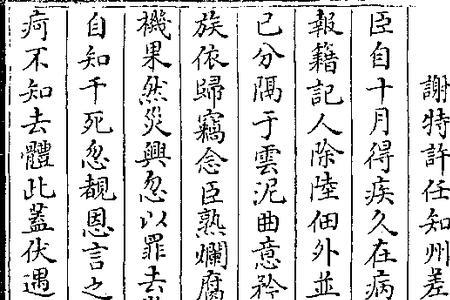 謝特許任知州差
臣自十月得疾久在病
報籍記人除陸佃外並
已分隔于雲泥曲意矜
族依歸竊念臣熟爛腐
機果然災興忽以罪去
自知千死忽覩恩言之
疴不知去體此蓋伏遇